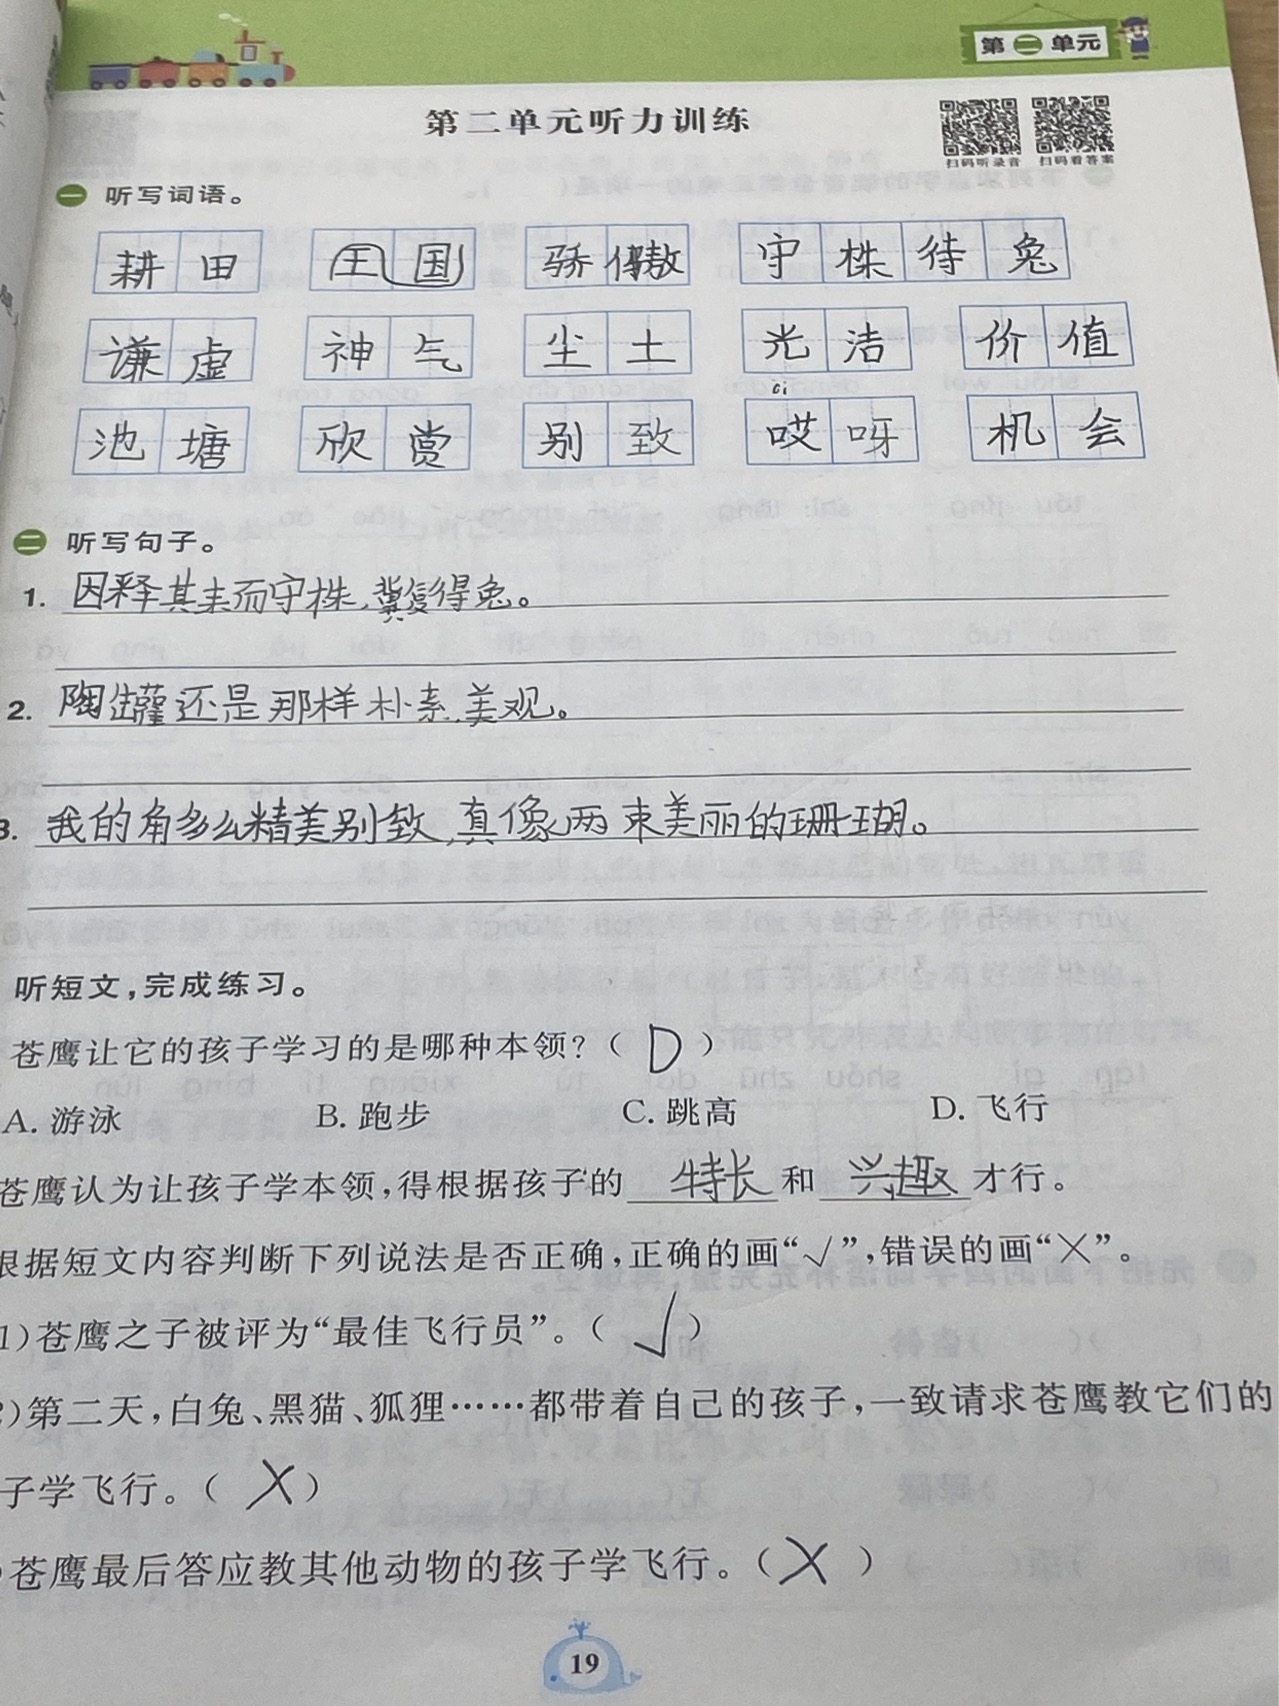 第二单元
第二单元听力训练
扫码听录音 扫码看答案
一 听写词语。
耕田 国王 骄傲 守株待兔
谦虚 神气 尘土 光洁 价值
āi
池塘 欣赏 别致 哎呀 机会
二 听写句子。
1. 因释其耒而守株,冀复得兔。
2. 陶罐还是那样朴素、美观。
3. 我的角多么精美别致,真像两束美丽的珊瑚。
听短文,完成练习。
苍鹰让它的孩子学习的是哪种本领?( D )
A. 游泳 B. 跑步 C. 跳高 D. 飞行
苍鹰认为让孩子学本领,得根据孩子的 特长 和 兴趣 才行。
根据短文内容判断下列说法是否正确,正确的画“√”,错误的画“×”。
1)苍鹰之子被评为“最佳飞行员”。( √ )
2)第二天,白兔、黑猫、狐狸……都带着自己的孩子,一致请求苍鹰教它们的
子学飞行。( × )
)苍鹰最后答应教其他动物的孩子学飞行。( × )
19